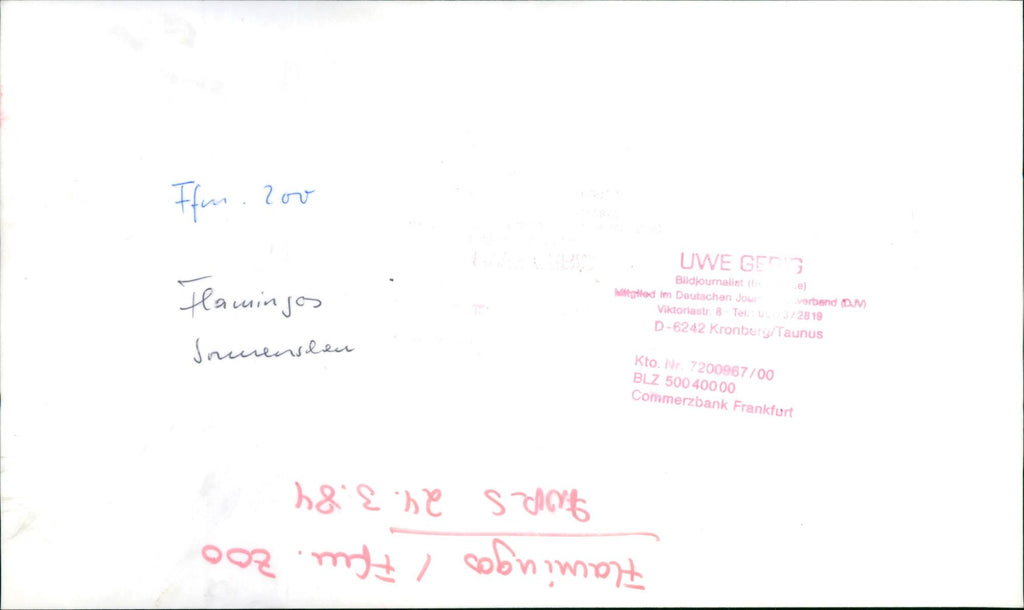 Ffm. Zoo
Flamingos
UWE GE
Bildjournalist
Mitglied im Deutschen Jour verband (DJV)
Viktoriastr. 8 · Tel.: 2819
D-6242 Kronberg/Taunus
Kto. Nr. 7200967/00
BLZ 500 400 00
Commerzbank Frankfurt
Flamingos / Ffm. Zoo
24.3.84